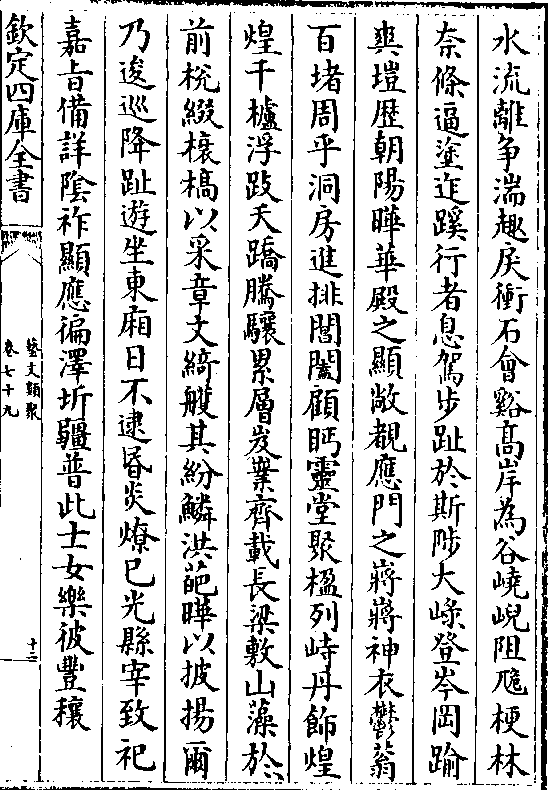 水流離争湍趣戾衝石會谿髙岸為谷嶢峴阻卼梗林
柰條逼塗迮蹊行者息駕步趾於斯陟大嵠登岑岡踰
爽塏歴朝陽曄華殿之顯敞覩應門之蔣蔣神衣鬱蓊
百堵周乎洞房進排闔闥顧眄靈堂聚楹列峙丹飾煌
煌千櫨浮跂夭蹻騰驤累層岌業齊載長梁敷山藻於
前棁綴榱槁以采章文綺艘其紛鱗洪葩曄以披揚爾
乃逡巡降趾遊坐東廂日不逮昏炎燎已光縣宰致祀
嘉旨備詳陰祚顯應徧澤圻疆普此士女樂彼豐穰
欽定四庫全書
藝文類聚
卷七十九
十二